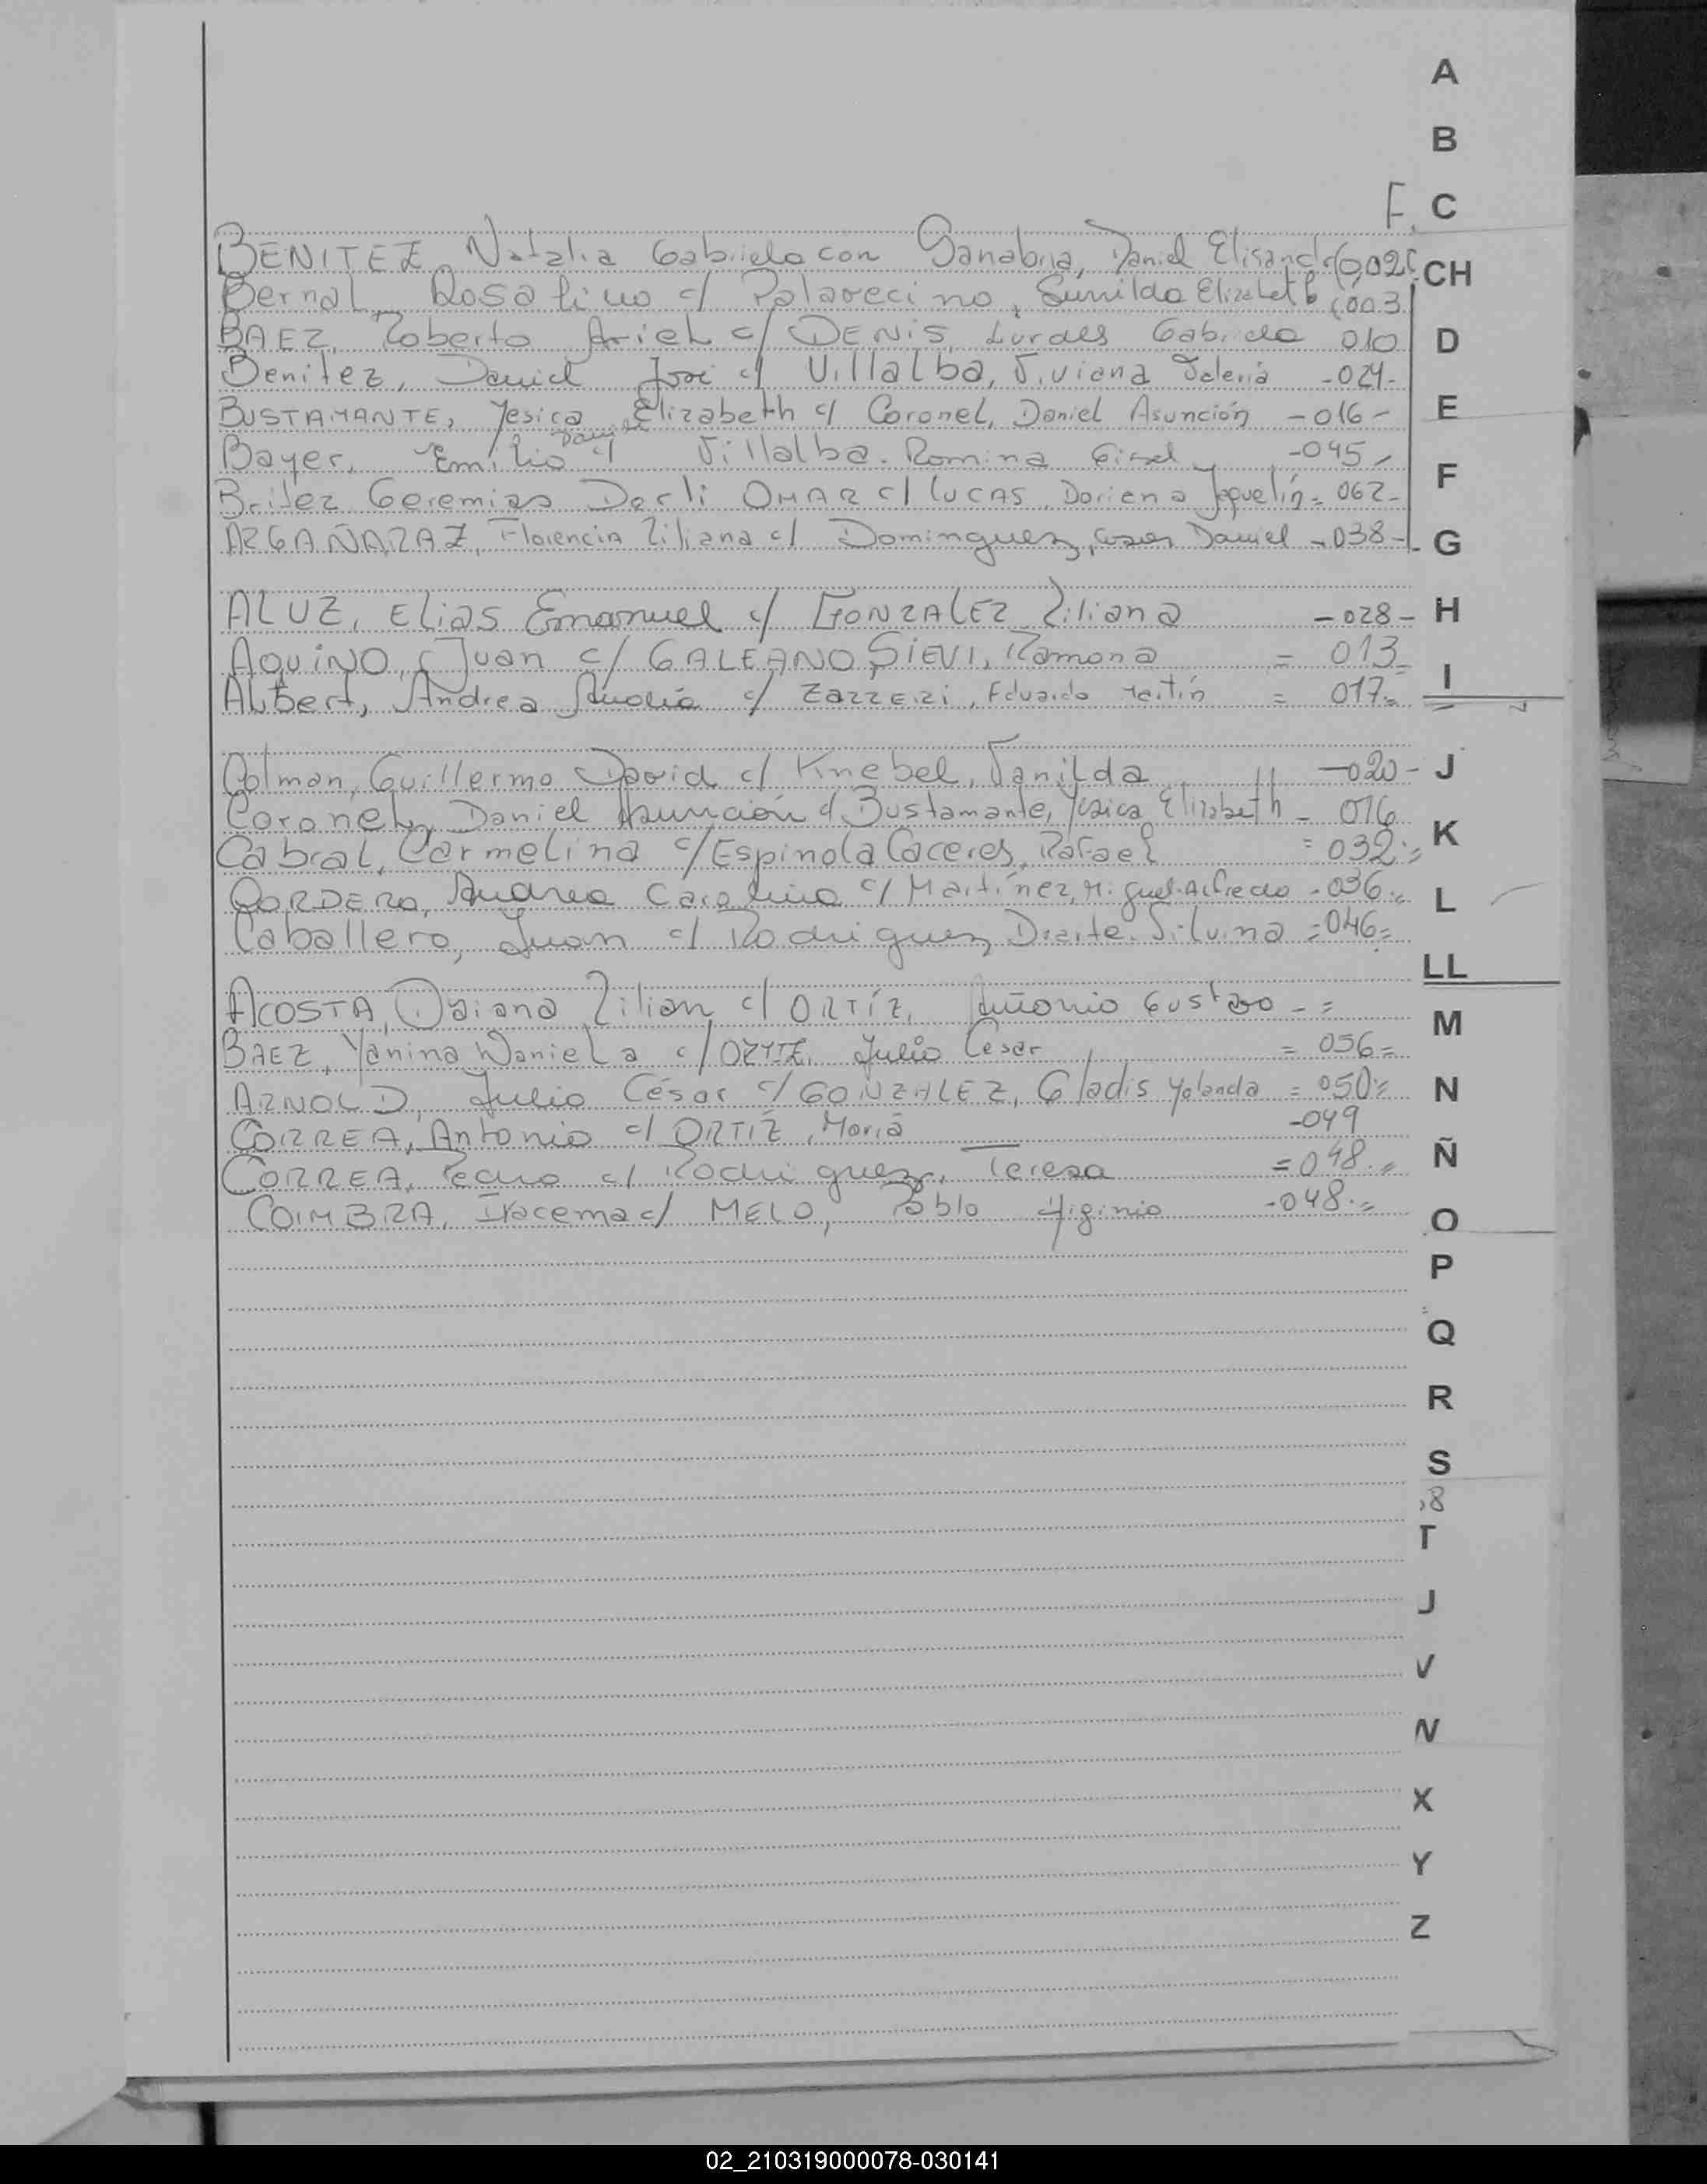 A
B
F. C
BENITEZ, Natalia Gabriela con Sanabria, Daniel Elisandro
CH
Bernal, Rosalino c/ Palavecino, Sunilda Elizabeth 003
BAEZ, Roberto Ariel c/ DENIS, Lurdes Gabriela 010
D
Benitez, Daniel José c/ Villalba, Viviana Valeria -024-
BUSTAMANTE, Yesica Elizabeth c/ Coronel, Daniel Asunción -016-
E
Bayer, Emilio Daniel c/ Villalba. Romina Gisel -045-
F
Britez Geremias Derli OMAR c/ LUCAS, Doriana Jaquelín = 062-
ARGAÑARAZ, Florencia Liliana c/ Dominguez, Cesar Daniel -038-
G
ALUZ, Elias Emanuel c/ GONZALEZ Liliana -028-
H
AQUINO, Juan c/ GALEANO SIEVI, Ramona = 013-
I
Albert, Andrea Analía c/ ZAZZERI, Eduardo Martín = 017=
Colman, Guillermo David c/ Knebel, Vanilda " -020-
J
Coronel, Daniel Asunción c/ Bustamante, Yesica Elizabeth - 016
K
Cabral, Carmelina c/ Espinola Caceres, Rafael = 032=
CORDERO, Andrea Carolina c/ Martínez, Miguel Alfredo -036=
L
Caballero, Juan c/ Rodriguez Duarte. Silvina =046=
LL
ACOSTA, Daiana Lilian c/ ORTÍZ, Antonio Gustavo - =
M
BAEZ, Yanina Daniela c/ ORTIZ, Julio Cesar = 056=
N
ARNOLD, Julio César c/ GONZALEZ, Gladis Yolanda = 050=
CORREA, Antonio c/ ORTIZ, María -049
Ñ
CORREA, Pedro c/ Rodriguez, Teresa =048.=
COIMBRA, Iracema c/ MELO, Pablo Higinio -048.=
O
P
Q
R
S
8
T
U
V
W
X
Y
Z
02_210319000078-030141